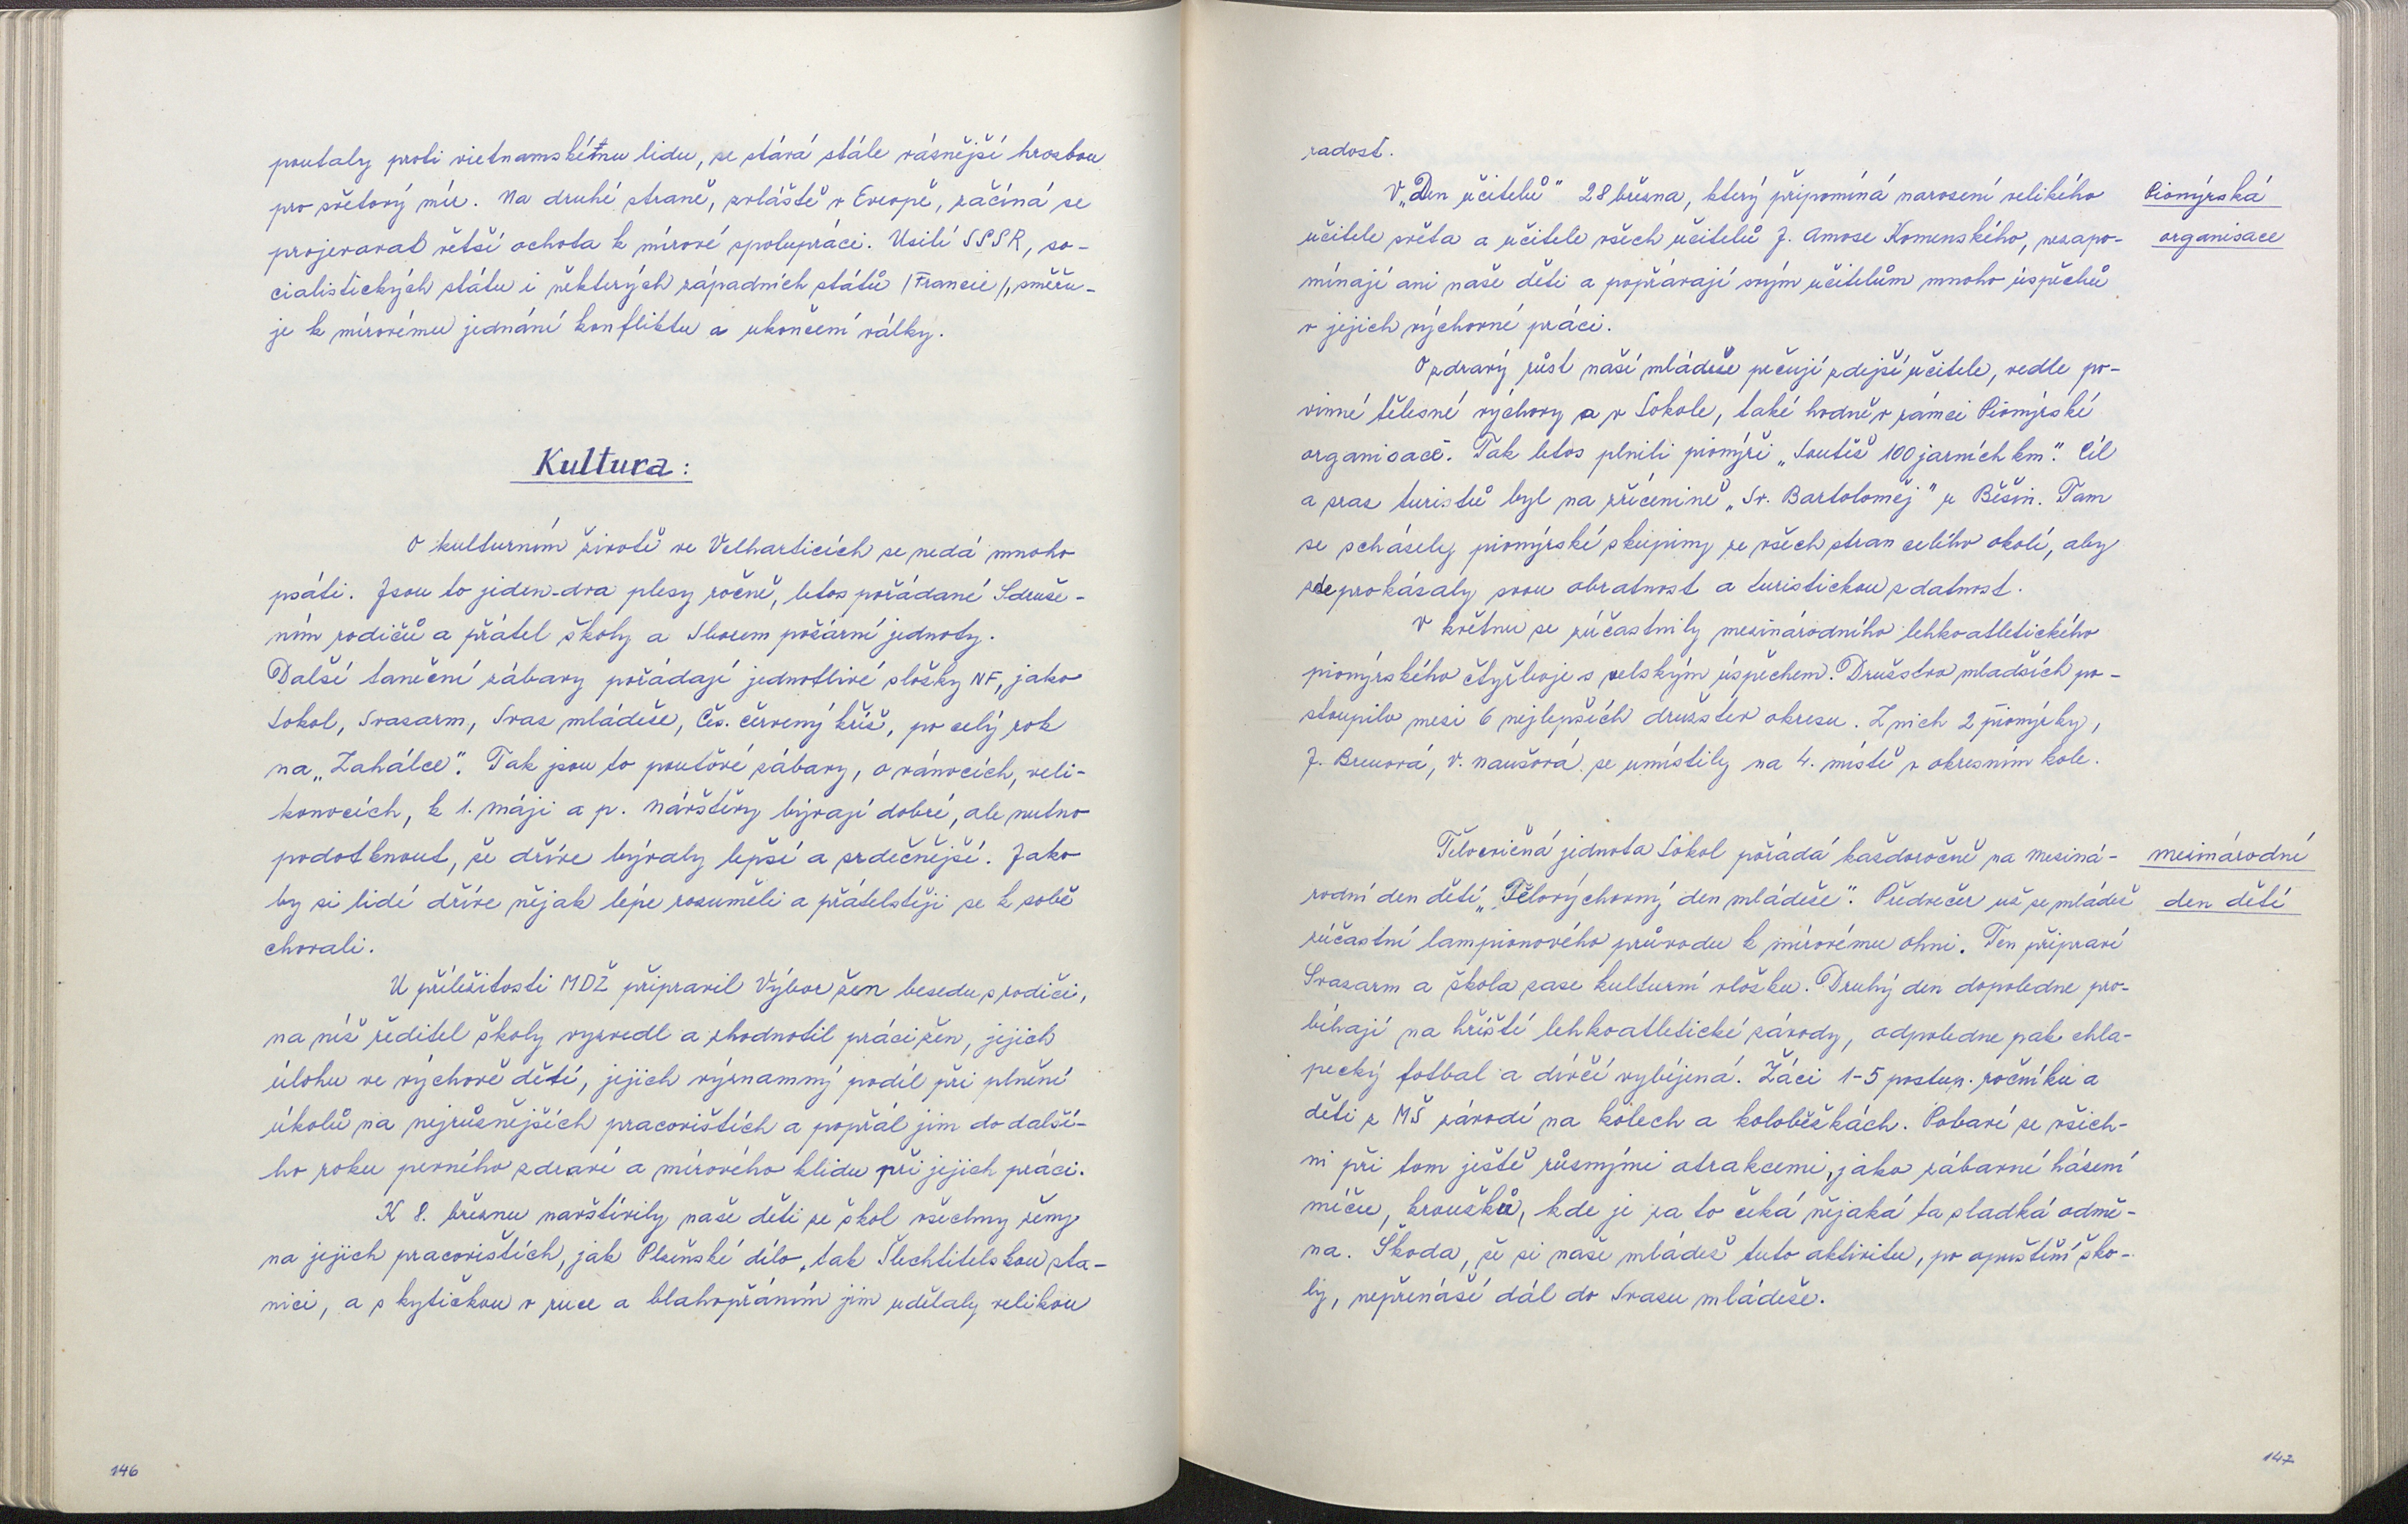 poutaly proti vietnamskému lidu, se stává stále vážnější hrozbou
pro světový mír. Na druhé straně, zvláště v Evropě, začíná se
projevovat větší ochota k mírové spolupráci. Usilí SSSR, so-
cialistických státu i některých západních států /Francie/, směřu-
je k mírovému jednání konfliktu a ukončení války.
Kultura:
O kulturním životě ve Velharticích se nedá mnoho
psáti. Jsou to jeden-dva plesy ročně, letos pořádané Sdruže-
ním rodičů a přátel školy a Sborem požární jednoty.
Další taneční zábavy pořádají jednotlivé složky NF, jako
Sokol, Svazarm, Svaz mládeže, Čs. červený kříž, po celý rok
na „Zahálce". Tak jsou to pouťové zábavy, o vánocích, veli-
konocích, k 1. máji a p. Návštěvy bývají dobré, ale nutno
podotknout, že dříve bývaly lepší a srdečnější. Jako
by si lidé dříve nějak lépe rozuměli a přátelštěji se k sobě
chovali.
U příležitosti MDŽ připravil Výbor žen besedu s rodiči,
na níž ředitel školy vyzvedl a zhodnotil práci žen, jejich
úlohu ve výchově dětí, jejich významný podíl při plnění
úkolů na nejrůznějších pracovištích a popřál jim do další-
ho roku pevného zdraví a mírového klidu při jejich práci.
K 8. březnu navštívily naše děti ze škol všechny ženy
na jejich pracovištích, jak Plzeňské dílo, tak Šlechtitelskou sta-
nici, a s kytičkou v ruce a blahopřáním jim udělaly velikou
146
radost.
V „Den učitelů" 28 března, který připomíná narození velikého
Pionýrská
učitele světa a učitele všech učitelů J. Amose Komenského, nezapo-
organisace
mínají ani naše děti a popřávají svým učitelům mnoho úspěchů
v jejich výchovné práci.
O zdravý růst naší mládeže pečují zdejší učitelé, vedle po-
vinné tělesné výchovy a v Sokole, také hodně v rámci Pionýrské
organisace. Tak letos plnili pionýři „Soutěž 100 jarních km". Cíl
a sraz turistů byl na zřícenině „Sv. Bartoloměj" u Běšin. Tam
se scházely pionýrské skupiny ze všech stran celého okolí, aby
zde prokázaly svou obratnost a turistickou zdatnost.
V květnu se zúčastnily mezinárodního lehkoatletického
pionýrského čtyřboje s velským úspěchem. Družstvo mladších po-
stoupilo mezi 6 nejlepších družstev okresu. Z nich 2 pionýrky,
J. Breuová, V. Naušová se umístily na 4. místě v okresním kole.
Tělocvičná jednota Sokol pořádá každoročně na Meziná-
mezinárodní
rodní den dětí „Tělovýchovný den mládeže". Předvečer už se mládež
den dětí
zúčastní lampionového průvodu k mírovému ohni. Ten připraví
Svazarm a škola zase kulturní vložku. Druhý den dopoledne pro-
bíhají na hřišti lehkoatletické závody, odpoledne pak chla-
pecký fotbal a dívčí vybíjená. Žáci 1-5 postup. ročníku a
děti z MŠ závodí na kolech a koloběžkách. Pobaví se všich-
ni při tom ještě různými atrakcemi, jako zábavné házení
míčů, kroužků, kde je za to čeká nějaká ta sladká odmě-
na. Škoda, že si naše mládež tuto aktivitu, po opuštění ško-
ly, nepřenáší dál do Svazu mládeže.
147